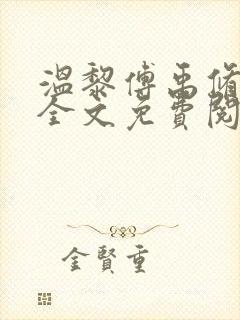 温黎傅禹脩
全文免費閱
金賢重